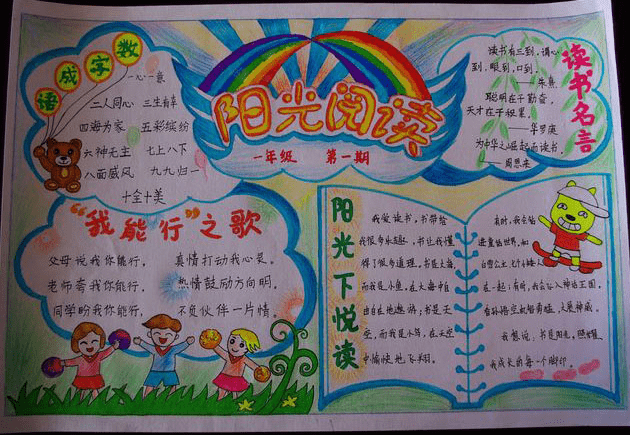 数字成语
一心一意
二人同心 三生有幸
四海为家 五彩缤纷
六神无主 七上八下
八面威风 九九归一
十全十美
阳光阅读
一年级 第一期
读书名言
读书有三到,谓心
到,眼到,口到。
——朱熹
聪明在于勤奋,
天才在于积累。
——华罗庚
为中华之崛起而读书。
——周恩来
“我能行”之歌
父母说我你能行, 真情打动我心灵。
老师夸我你能行, 热情鼓励方向明。
同学盼我你能行, 不负伙伴一片情。
阳光下悦读
我爱读书,书带给
我很多乐趣,书让我懂
得了很多道理。书是大海,
而我是小鱼,在大海中自
由自在地遨游;书是天
空,而我是小鸟,在天空
中愉快地飞翔。
有时,我会钻
进童话世界,和
白雪公主、七个小矮人
在一起;有时,我会钻入神话王国,
看孙悟空
我想说:书是阳光,照耀
我成长的每一个脚印。